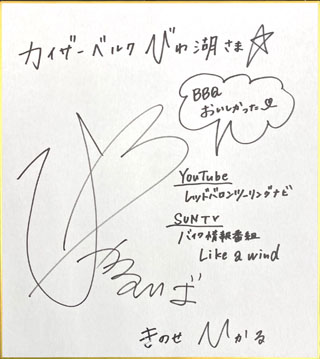 カイザーベルク びわ湖さま☆
BBQ
おいしかった♡
YouTube
レッドバロンツーリングナビ
SUNTV
バイク情報番組
Like a wind
きのせ ひかる